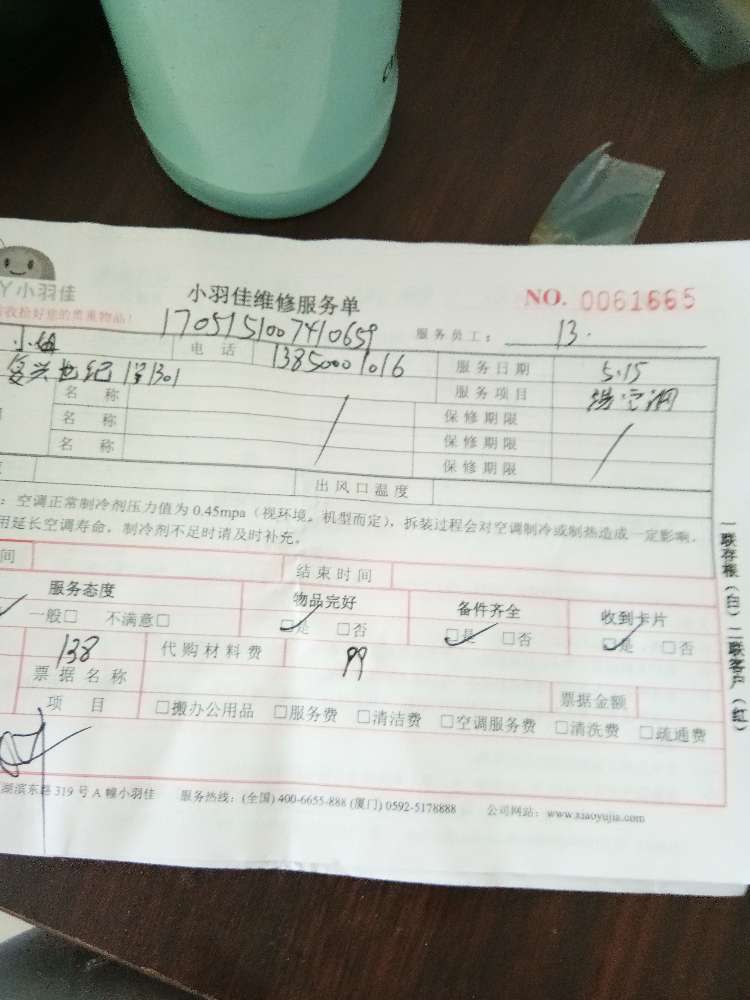 小羽佳
收拾好您的贵重物品!
小羽佳维修服务单
NO. 0061665
1705151007410659
服务员工: 13.
电话 13850001016 服务日期 5.15
复兴世纪 1301 服务项目 洗空调
名称 保修期限
名称 保修期限
名称 保修期限
出风口温度
: 空调正常制冷剂压力值为 0.45mpa (视环境。机型而定), 拆装过程会对空调制冷或制热造成一定影响,
用延长空调寿命, 制冷剂不足时请及时补充。
间 结束时间
服务态度 物品完好 备件齐全 收到卡片
一般□ 不满意□ □是 □否 □是 □否 □是 □否
138 代购材料费 99
票据名称 票据金额
项目 □搬办公用品 □服务费 □清洁费 □空调服务费 □清洗费 □疏通费
湖滨东路 319 号 A 幢小羽佳 服务热线: (全国) 400-6655-888 (厦门) 0592-5178888 公司网站: www.xiaoyujia.com
一联存根(白) 二联客户(红)